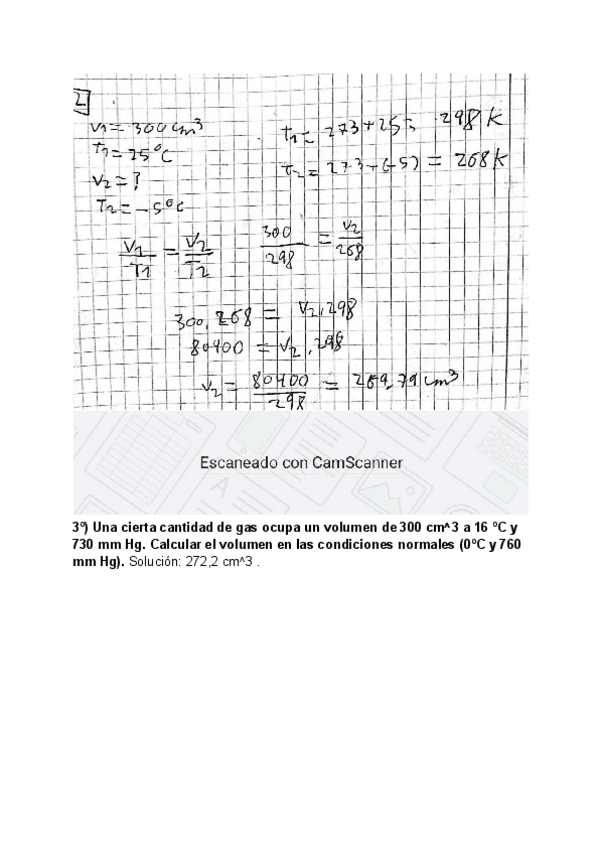 2
V1 = 300 cm³
T1 = 25 ºC
V2 = ?
T2 = -5ºC
T1 = 273 + 25 = 298 K
T2 = 273 + (-5) = 268 K
V1/T1 = V2/T2
300/298 = V2/268
300.268 = V2.298
80400 = V2.298
V2 = 80400/298 = 269,79 cm³
Escaneado con CamScanner
3º) Una cierta cantidad de gas ocupa un volumen de 300 cm^3 a 16 ºC y
730 mm Hg. Calcular el volumen en las condiciones normales (0ºC y 760
mm Hg). Solución: 272,2 cm^3 .